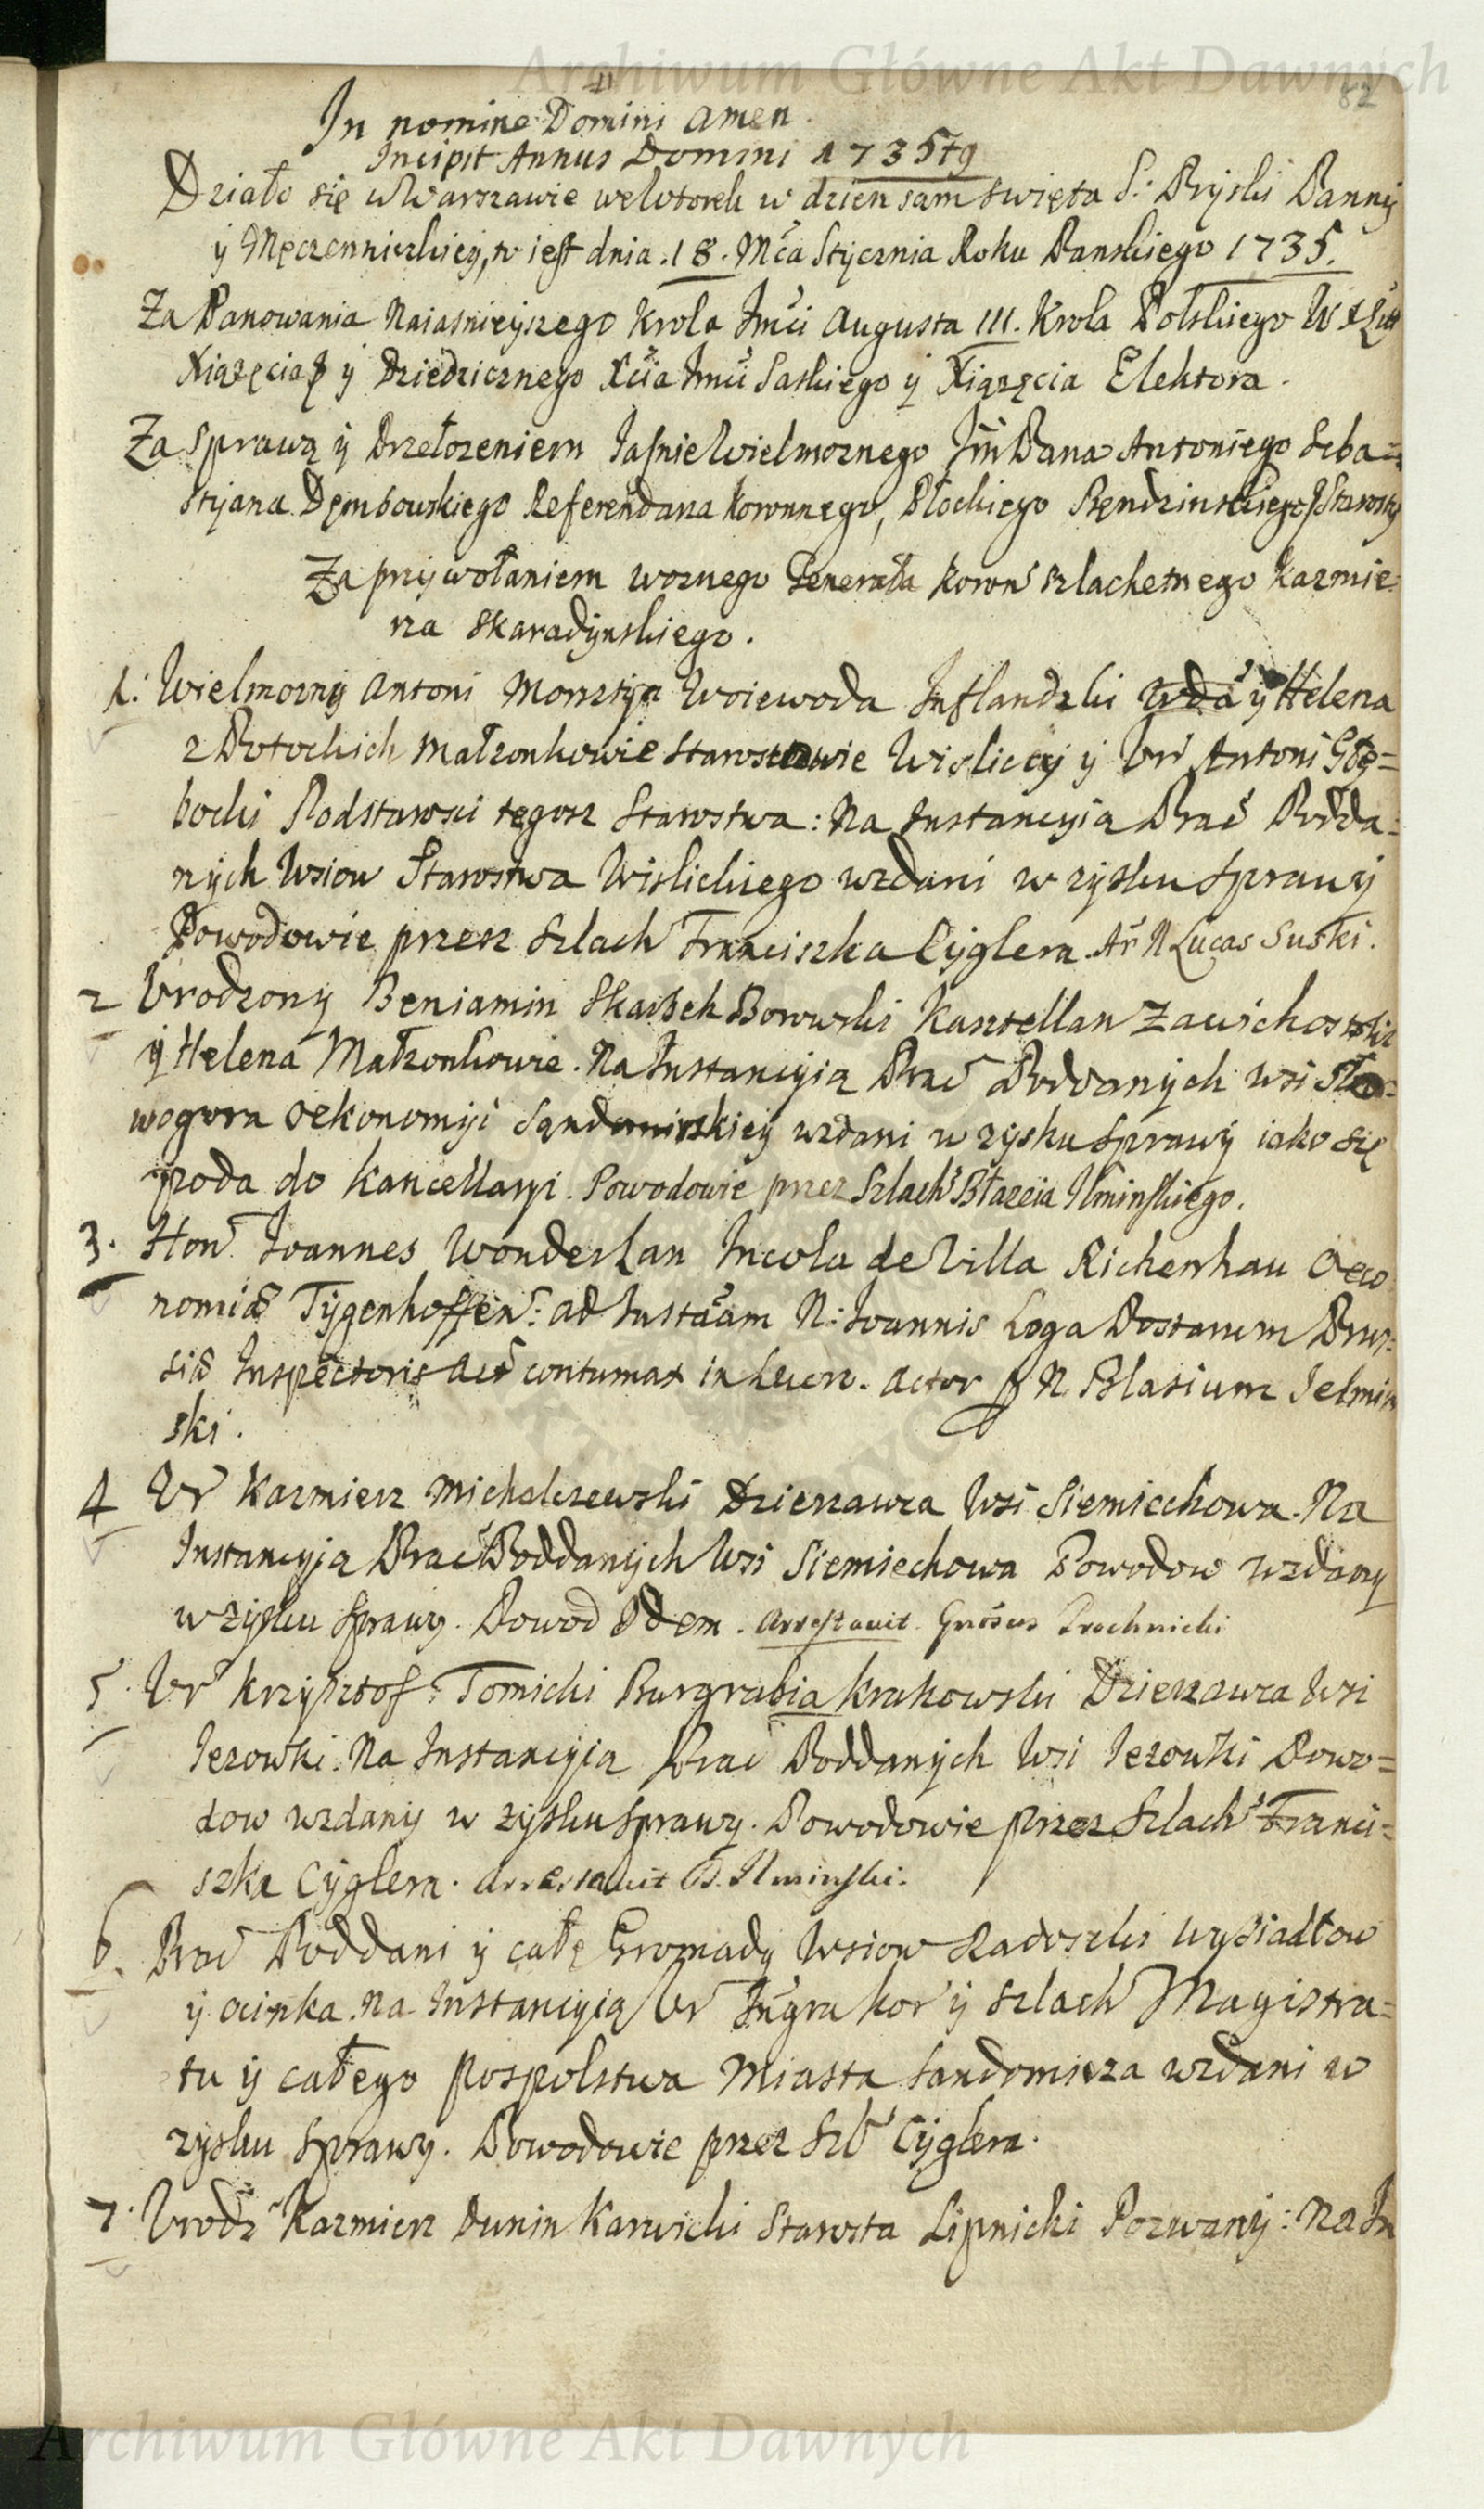 Archiwum Główne Akt Dawnych
82
In nomine Domini Amen.
Incipit Annus Domini 1735tg
Działo się w Warszawie we Wtorek w dzien sam swięta S: Pryski Panny
y Męczenniczkiey, to iest dnia .18. Mca Stycznia Roku Panskiego 1735.
Za Panowania Naiasnieyszego Krola Jmci Augusta III. Krola Polskiego W X Litt
Xiązęcia y Dziedzicznego Xcia Jmci Saskiego y Xiązęcia Elektora.
Za sprawą y Przełozeniem Jasnie Wielmoznego Jm Pana Antoniego Seba=
styana Dęmbowskiego Referendarza Koronnego, Płockiego Będzinskiego Starosty
Za przywołaniem woznego Generała Koron szlachetnego Kazmie=
rza Skaradynskiego.
1. Wielmozny Antoni Morsztyn Woiewoda Inflandzki y Helena
z Potockich Małzonkowie Starostowie Wisliccy y Ur Antoni Głę=
bocki Podstarosci tegosz Starostwa: Na Instancyią Prac Podda=
nych Wsiow Starostwa Wislickiego wzdani w zysku Sprawy
Powodowie przesz Szlach Franciszka Cyglera. Ar N Lucas Suski.
2 Urodzony Beniamin Skarbek Borowski Kasztellan Zawichostski
y Helena Małzonkowie. Na Instancyią Prac Poddanych wsi Sło=
wogora Oekonomiji Sandomirskiey wzdani w zysku Sprawy iako się
poda do Kancellaryi. Powodowie przez Szlach Błazeia Ilminskiego.
3. Hon Ioannes Wonderlan Incola de Villa Richenhau Oeco
nomiæ Tygenhoffen: ad Instaam N: Ioannis Loga Postarum Prus=
siæ Inspectoris act contumax in Lucro. Actor p N Blasium Jelmin
ski.
4 Ur Kazmierz Michalczewski Dzierzawca Wsi Siemiechowa. Na
Instancyją Prac Poddanych Wsi Siemiechowa Powodow wzdany
w zysku sprawy. Powod Idem. Arrestavit Gnosus Prochnicki
5. Ur Krzysztof Tomicki Burgrabia Krakowski Dzierzawca Wsi
Jezowki. Na Instancyią Prac Poddanych Wsi Jezowki Powo=
dow wzdany w zysku sprawy. Powodowie przez Szlach Franci=
szka Cyglera. Arrestavit B. Ilminski.
6. Prac Poddani y całę Gromady Wsiow Radoszki Wysiadłow
y Ocinka. Na Instancyią Ur Instygra Kor y Szlach Magistra=
tu y całego Pospolstwa Miasta Sandomirza wzdani w
zysku Sprawy. Powodowie przez Szl Cyglera.
7. Urodz Kazmierz Dunin Karwicki Starosta Lipnicki Pozwany: Na In
Archiwum Główne Akt Dawnych